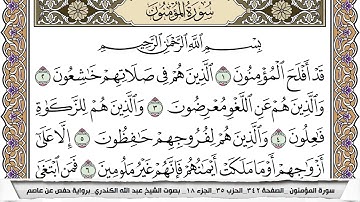 سورة المؤمنون
بِسْمِ اللَّهِ الرَّحْمَٰنِ الرَّحِيمِ
قَدْ أَفْلَحَ الْمُؤْمِنُونَ ١ الَّذِينَ هُمْ فِي صَلَاتِهِمْ خَاشِعُونَ ٢
وَالَّذِينَ هُمْ عَنِ اللَّغْوِ مُعْرِضُونَ ٣ وَالَّذِينَ هُمْ لِلزَّكَوٰةِ
فَاعِلُونَ ٤ وَالَّذِينَ هُمْ لِفُرُوجِهِمْ حَافِظُونَ ٥ إِلَّا عَلَىٰ
أَزْوَاجِهِمْ أَوْ مَا مَلَكَتْ أَيْمَانُهُمْ فَإِنَّهُمْ غَيْرُ مَلُومِينَ ٦ فَمَنِ ابْتَغَىٰ
سورة المؤمنون _الصفحة ٣٤٢_ الحزب ٣٥_الجزء ١٨_ بصوت الشيخ عبد الله الكندري_ برواية حفص عن عاصم